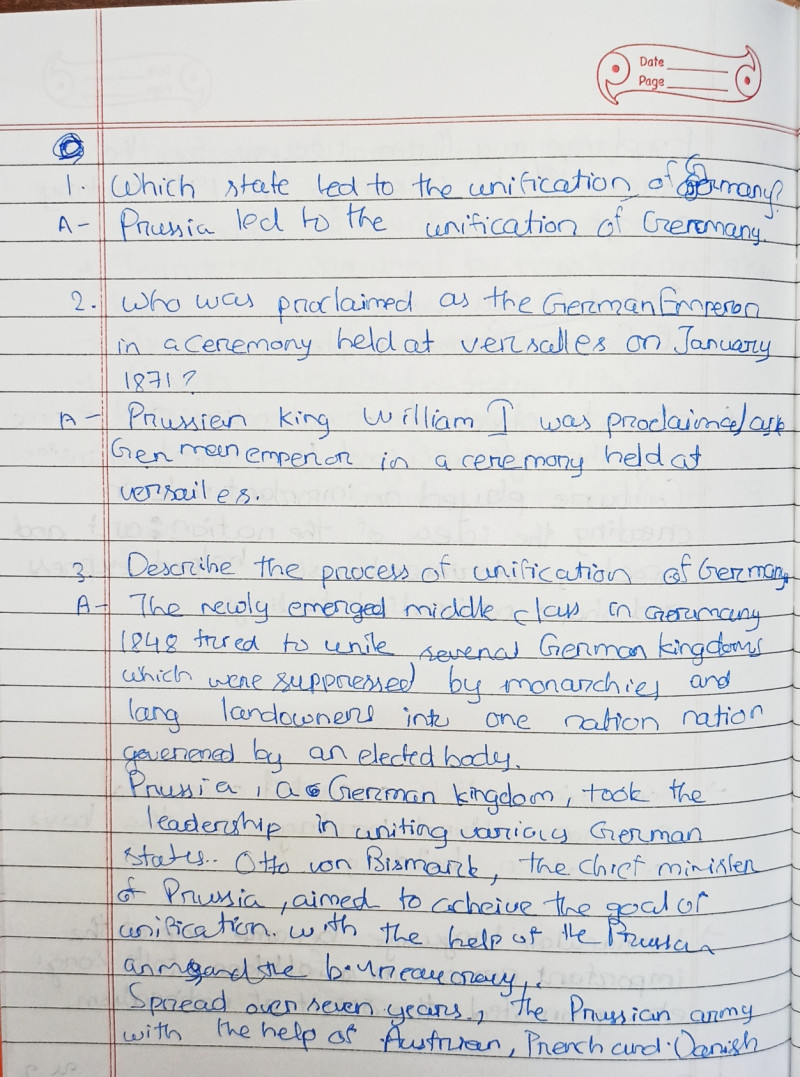 Date
Page
1. Which state led to the unification of Germany?
A- Prussia led to the unification of Geremany.
2. Who was proclaimed as the German Emperor
in a ceremony held at versalles on January
1871?
A- Prussien king William I was proclaimed as
German emperor in a ceremony held at
versailes.
3. Describe the process of unification of Germany
A- The newly emerged middle class in Geromany
1848 tried to unite several German kingdoms
which were suppressed by monarchies and
larg landowners into one nation nation
goverened by an elected body.
Prussia, a German kingdom, took the
leadership in uniting various German
states.. Otto von Bismark, the chief minister
of Prussia, aimed to acheive the goal of
unification. with the help of the Prussian
army and the
Spread over seven years., the Prussian army
with the help of Austrian, French and Danish